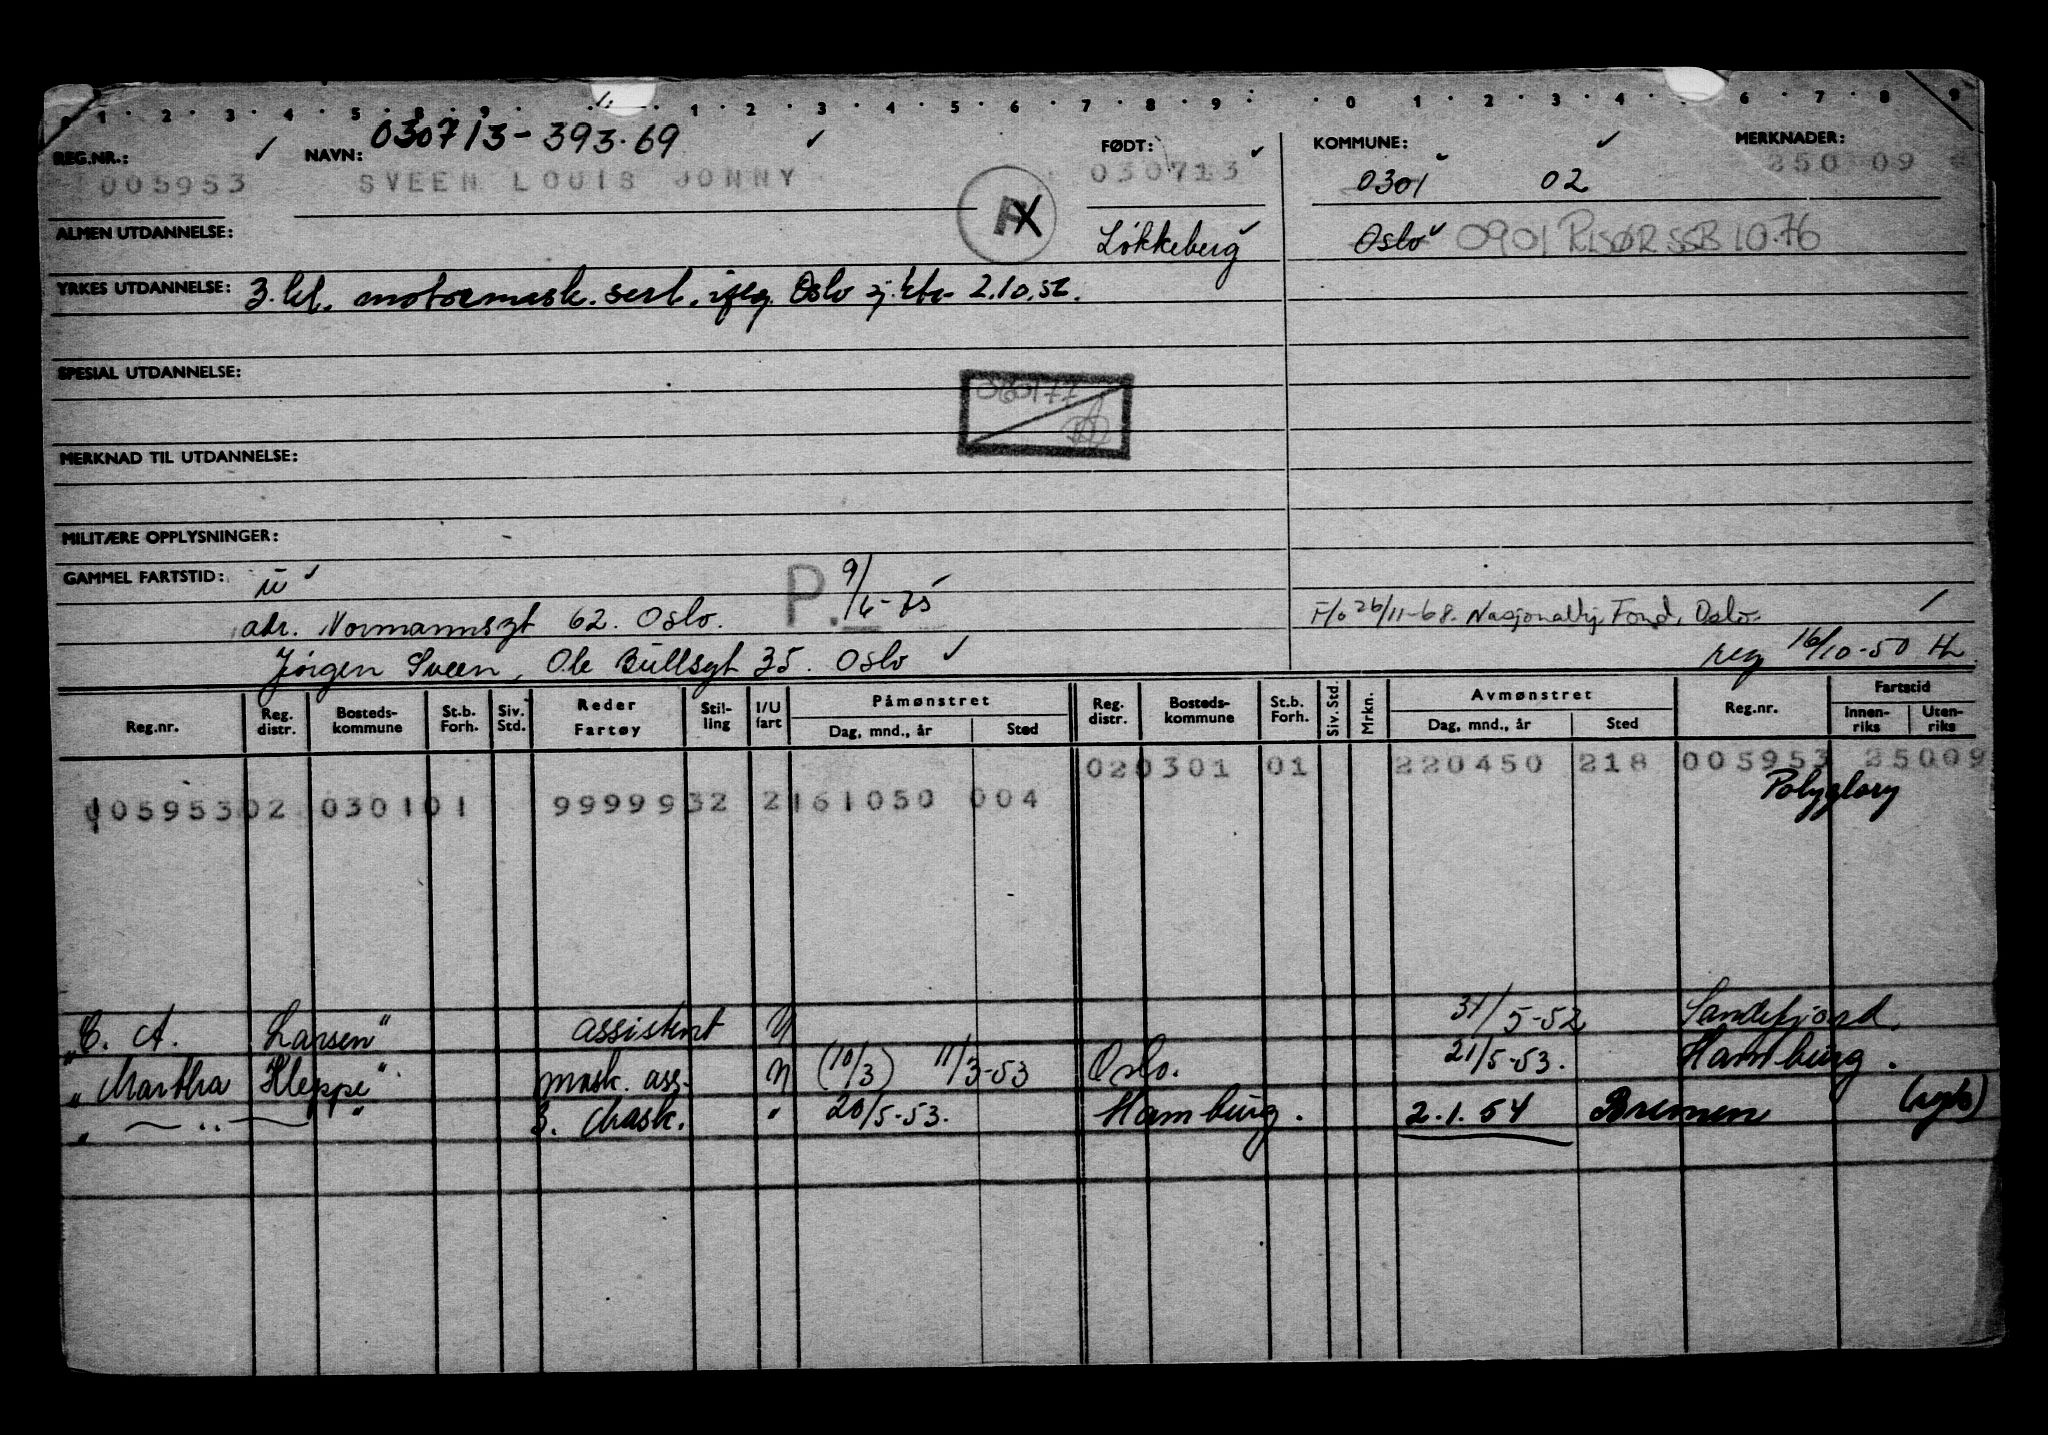 1 2 3 4 5 8 9 1 2 3 4 5 6 7 8 9 0 1 2 3 4 6 7 8 9
030713-393.69
REG.NR.: NAVN: FØDT: KOMMUNE: MERKNADER:
005953 SVEEN LOUIS JONNY 030713 0301 02 250 09
ALMEN UTDANNELSE: Løkkeberg Oslo 0901 RISØR SSB 10.76
YRKES UTDANNELSE: 3. kl. motormask. sert. Oslo 2.10.52.
SPESIAL UTDANNELSE:
060177
MERKNAD TIL UTDANNELSE:
MILITÆRE OPPLYSNINGER:
GAMMEL FARTSTID: P. 9/6-75
adr. Normannsgt 62. Oslo. F/o 26/11-68. Nasjonallij Fond, Oslo.
Jørgen Sveen, Ole Bullsgt 35. Oslo reg 16/10-50
Reg.nr. Reg. distr. Bosteds-kommune St.b. Forh. Siv. Std. Reder Fartøy Stil-ling I/U fart Påmønstret Dag, mnd., år Sted Reg. distr. Bosteds-kommune St.b. Forh. Siv. Std. Mrkn. Avmønstret Dag, mnd., år Sted Reg.nr. Fartstid Innen-riks Uten-riks
020301 01 220450 218 005953 25009
00595302 030101 9999932 2161050 004 Polyglory
"C. A. Larsen" assistent U 31/5-52 Sandefjord.
"Martha Kleppe" mask. ass. U (10/3) 11/3-53 Oslo. 21/5-53. Hamburg.
" — .. — " 3. Mask. " 20/5-53. Hamburg. 2.1.54 Bremen